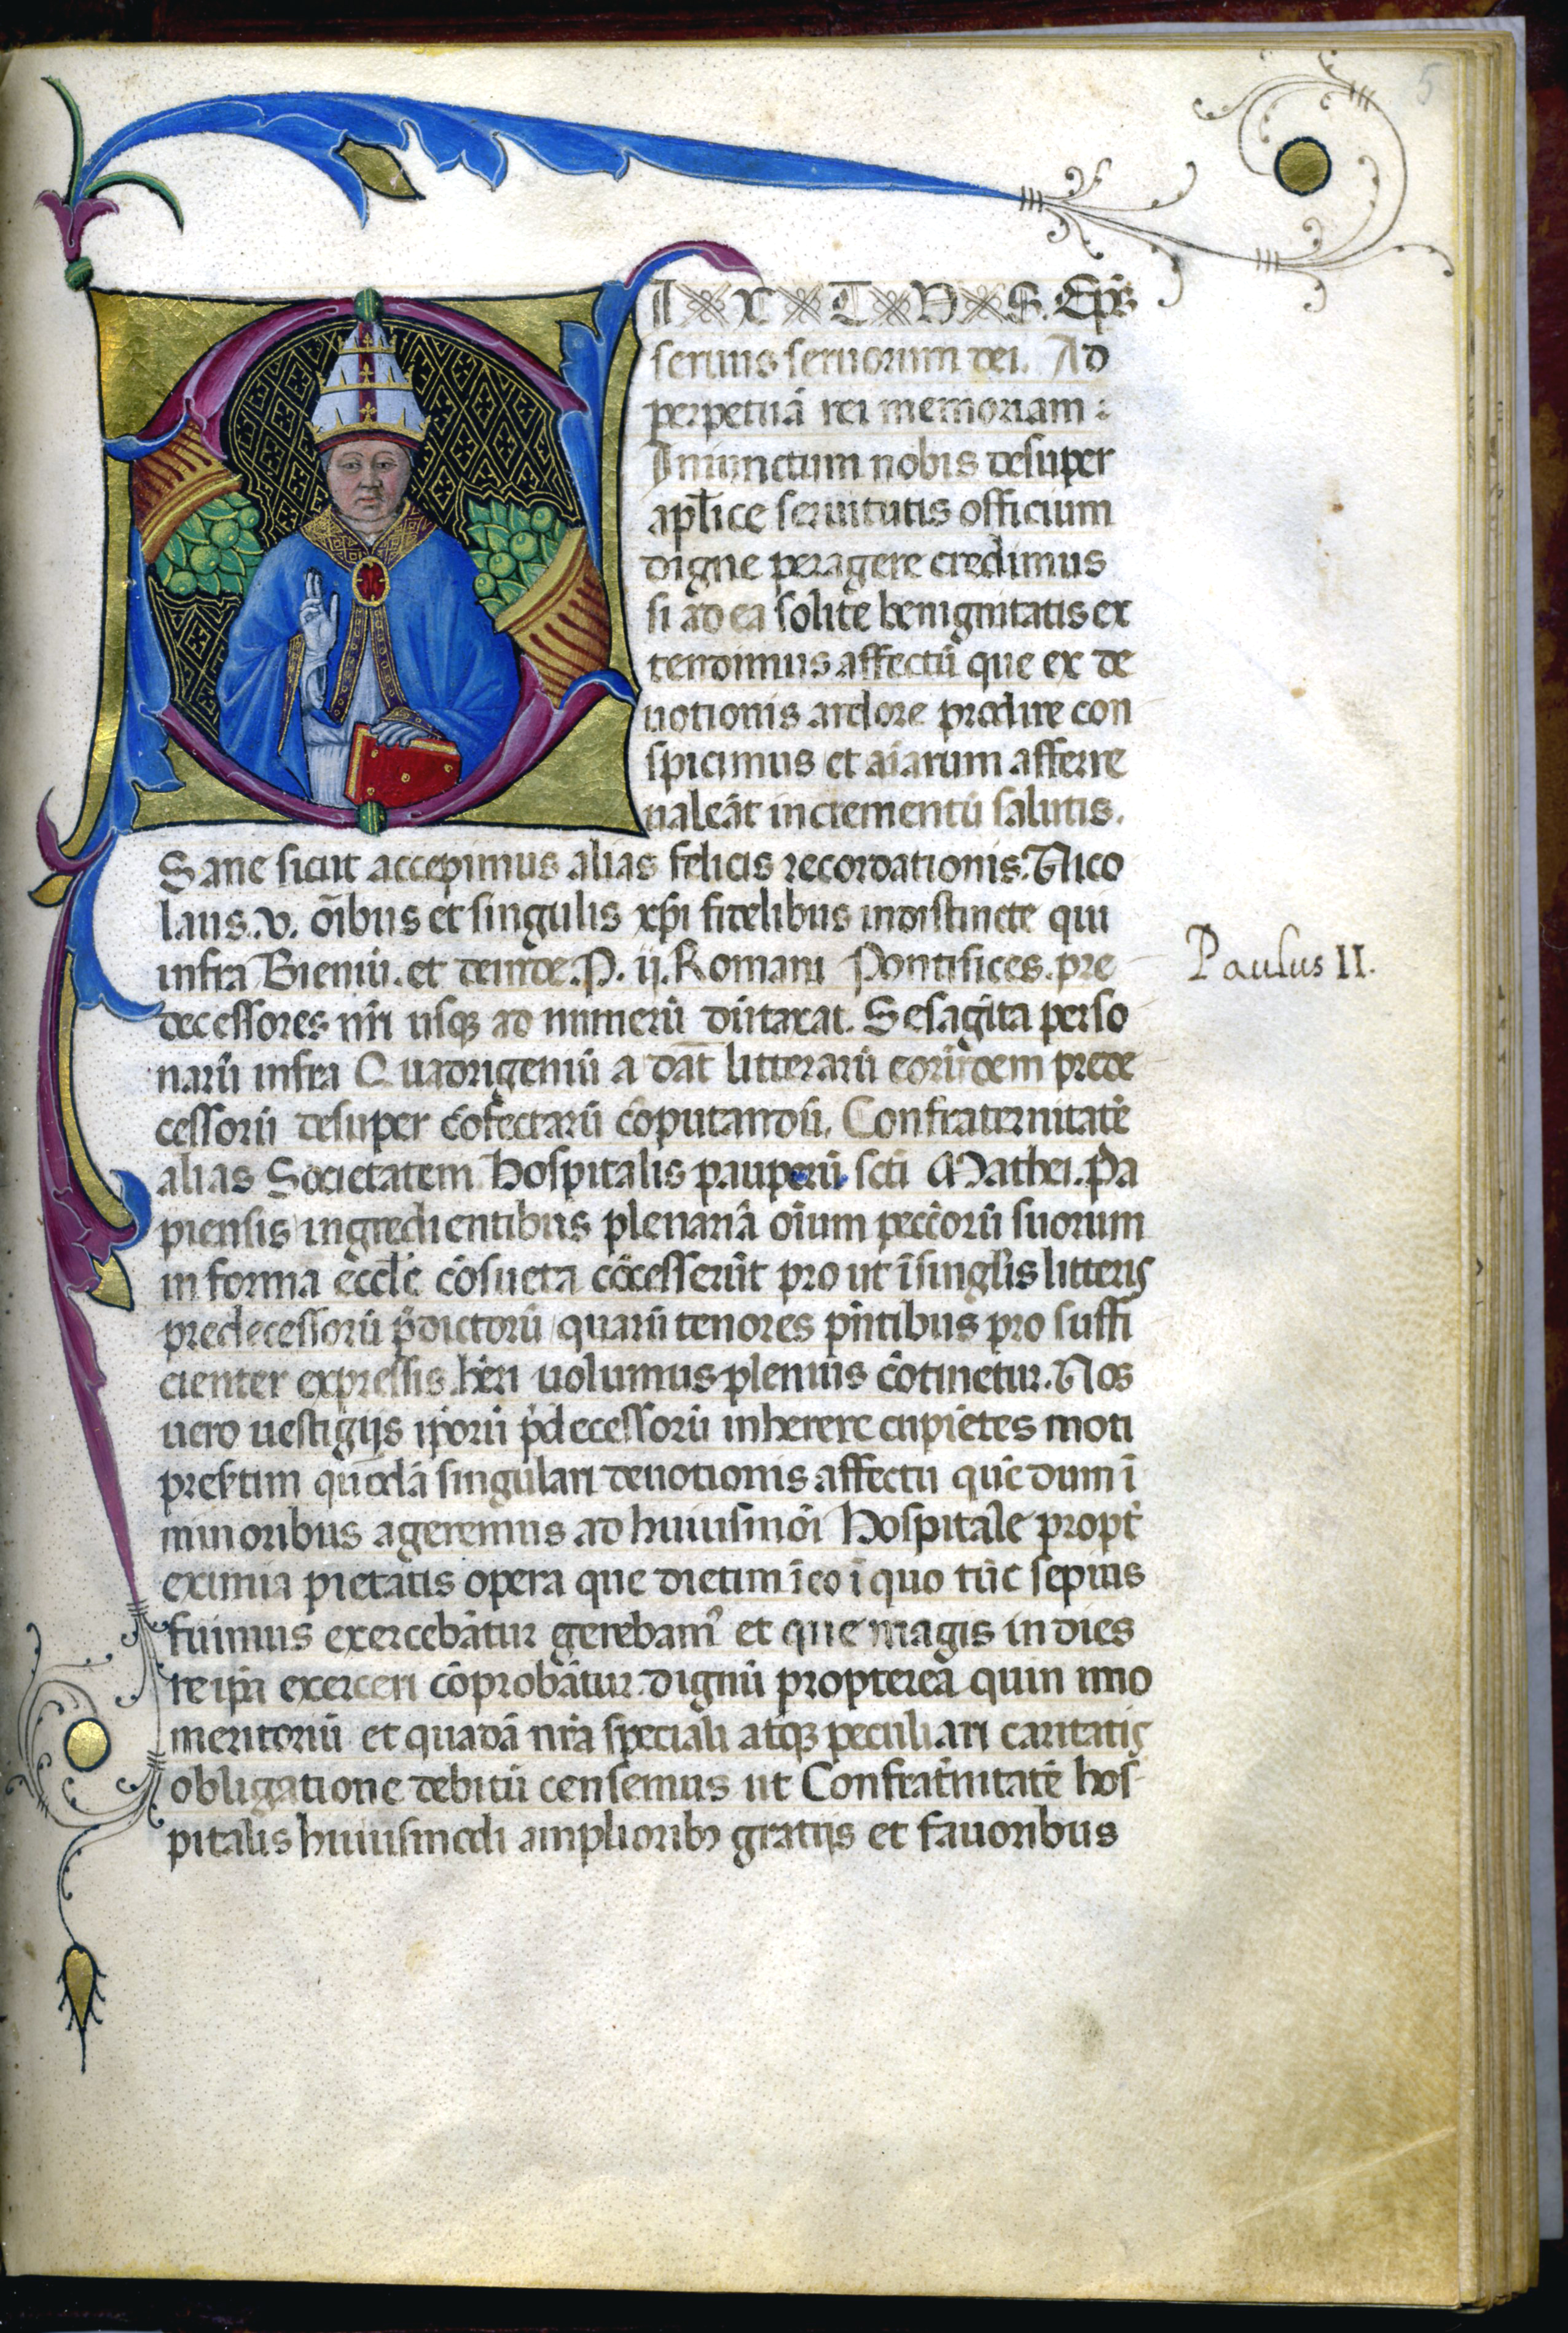 I X T V S. Ep̄s
seruus seruorum dei. Ad
perpetuā rei memoriam :
Iniunctum nobis desuper
apl̄ice seruitutis officium
digne peragere credimus
si ad ea solite benignitatis ex
tendimus affectū que ex de
uotionis ardore prodire con
spicimus et aīarum afferre
ualeāt incrementū salutis.
Sane sicut accepimus alias felicis recordationis. Nico
laus .v. oībus et singulis xp̄i fidelibus indistincte qui
infra Bieniū. et deinde .P. ij. Romani Pontifices. pre
Paulus II.
decessores nr̄i usqꝫ ad numerū dūtaxat. Sesagīta perso
narū infra Quadrigeniū a dat̄ litterarū eorūdem prede
cessorū desuper cōfectarū cōputandū. Confraternitatē
alias Societatem hospitalis pauperū sc̄ti Mathei. Pa
piensis ingredientibus plenariā oīum pecc̄orū suorum
in forma eccl̄e cōsueta cōcesserūt pro ut ī singl̄is litteris
predecessorū p̄dictorū quarū tenores pn̄tibus pro suffi
cienter expressis hēri uolumus plenius cōtinetur. Nos
uero uestigijs ip̄orū p̄decessorū inherere cupiētes moti
presertim quodā singulari deuotionis affectu quē dum ī
minoribus ageremus ad huiusmōi hospitale propt̄
eximia pietatis opera que dietim ī eo ī quo tūc sepius
fuimus exercebātur gerebam᷒ et que magis in dies
re ip̄a exerceri cōprobātur. dignū propterea quin imo
meritoriū et quadā nr̄a speciali atqꝫ peculiari caritatis
obligatione debitū censemus ut Confrat̄nitatē hos-
pitalis huiusmodi ampliorib᷒ gratijs et fauoribus
5